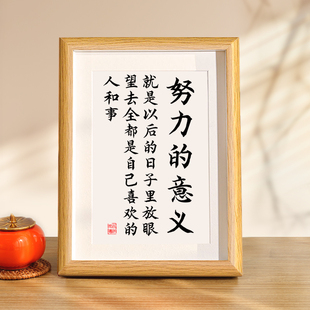 努力的意义
就是以后的日子里放眼
望去全都是自己喜欢的
人和事